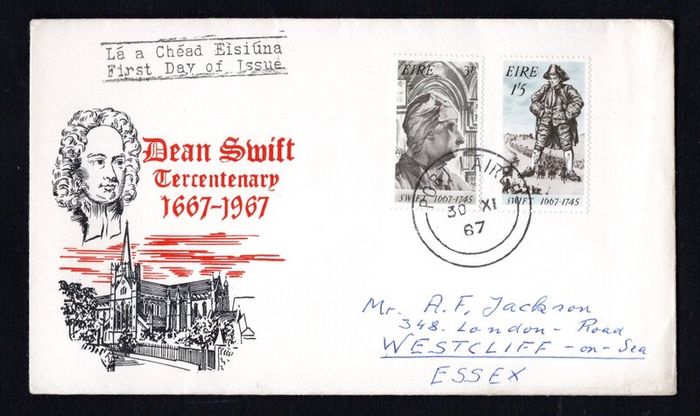 Lá a Chéad Eisiúna
First Day of Issue
Dean Swift
Tercentenary
1667-1967
ÉIRE 3p
SWIFT 1667-1745
ÉIRE
1'5
SWIFT 1667-1745
PORT LAIRGE
30 XI
67
Mr. A.F. Jackson
348. London-Road
WESTCLIFF-on-Sea
ESSEX